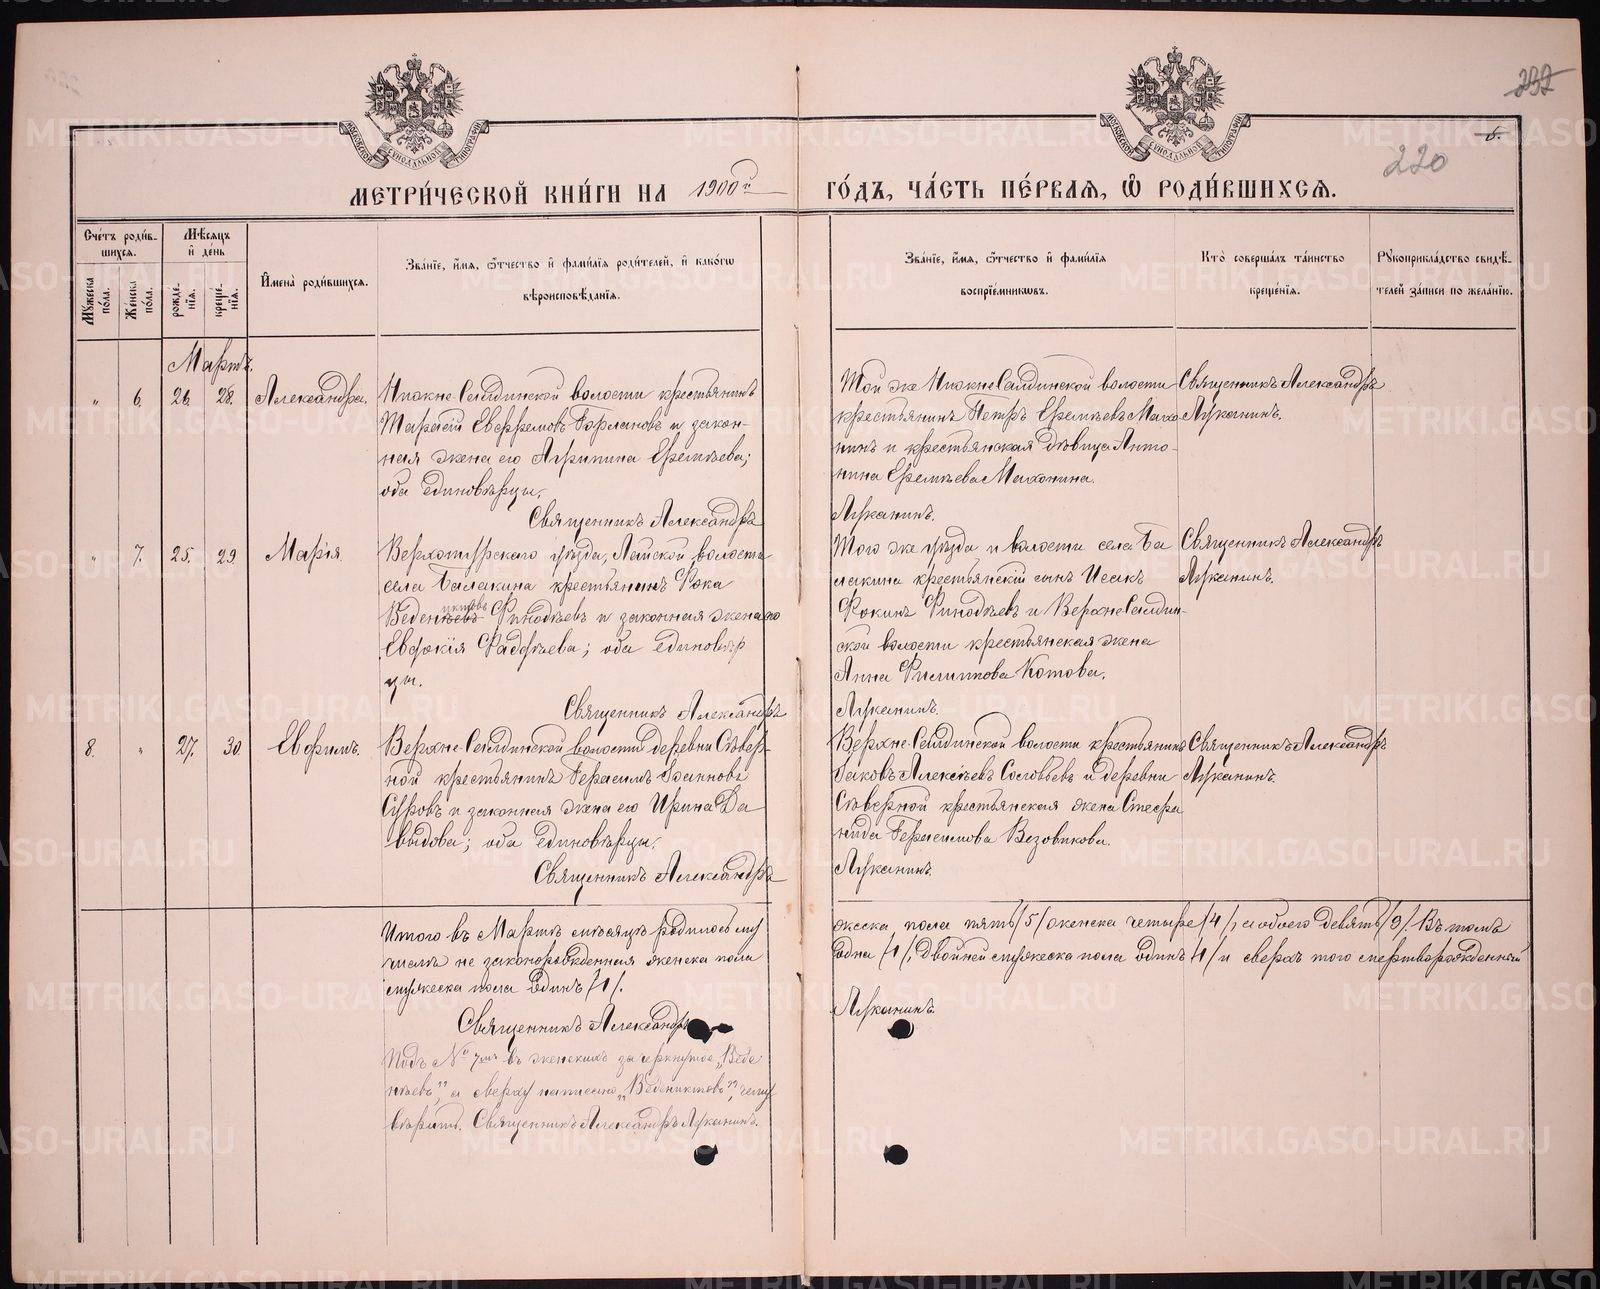 232
6.
220
МОСКОВСКОЙ СѴНОДАЛЬНОЙ ТИПОГРАФІИ
МОСКОВСКОЙ СѴНОДАЛЬНОЙ ТИПОГРАФІИ
МЕТРИ́ЧЕСКОЙ КНИ́ГИ НА 1900й ГО́ДЪ, ЧА́СТЬ ПЕ́РВАЯ, Ѡ РОДИ́ВШИХСЯ.
Сче́тъ роди́в-
шихся.
Мѣ́сяцъ
и҆ де́нь
Мꙋ́жеска по́ла.
Же́нска по́ла.
рожде-
нїя.
креще-
нїя.
И҆мена̀ роди́вшихся.
Зва́нїе, и҆́мя, ѻ҆́тчество и҆ фами́лїя роди́телей, и҆ како́гѡ
вѣроисповѣ́данїя.
Зва́нїе, и҆́мя, ѻ҆́тчество и҆ фами́лїя
воспрїе́мникѡвъ.
Кто̀ соверша́лъ та́инство
креще́нїя.
Рꙋкоприкла́дство свидѣ́-
телей за́писи по жела́нїю.
Мартъ.
" 6. 26. 28. Александра.
Нижне-Салдинской волости крестьянинъ
Тарасій Евфремовъ Горлановъ и закон-
ная жена его Агрипина Еремѣева;
оба единовѣрцы.
Священникъ Александръ
Той же Нижне-Салдинской волости
крестьянинъ Петръ Еремѣевъ Махо
нинъ и крестьянская дѣвица Анто-
нина Еремѣева Махонина.
Луканинъ.
Священникъ Александръ
Луканинъ.
" 7. 25. 29. Марія
Верхотурскаго уѣзда, Лайской волости
села Балакина крестьянинъ Фока
иктовъ
Веденѣевъ Финодѣевъ и законная жена его
Евдокія Фаддѣева; оба единовѣр
цы.
Священникъ Александръ
Того же уѣзда и волости села Ба
лакина крестьянскій сынъ Исакъ
Фокинъ Финодѣевъ и Верхне-Салдин-
ской волости крестьянская жена
Анна Филиппова Котова.
Луканинъ.
Священникъ Александръ
Луканинъ.
8. " 27. 30 Евфимъ.
Верхне-Салдинской волости деревни Сѣвер-
ной крестьянинъ Герасимъ Іоанновъ
Суровъ и законная жена его Ирина Да
выдова; оба единовѣрцы.
Священникъ Александръ
Верхне-Салдинской волости крестьянинъ
Іаковъ Алексѣевъ Соловьевъ и деревни
Сѣверной крестьянская жена Стефа
нида Герасимова Возовикова.
Луканинъ.
Священникъ Александръ
Луканинъ
Итого въ Мартѣ мѣсяцѣ родилось му
жеска пола пять /5/ женска четыре /4/, а обоего девять /9/. Въ томъ
числѣ не законорожденная женска пола
одна /1/, двойней мужеска пола одинъ /1/ и сверхъ того мертворожденный
мужеска пола одинъ /1/.
Священникъ Александръ
Луканинъ.
Подъ № 7мъ въ женскихъ зачеркнутое „Веде
нѣевъ", а сверху написано „Ведениктовъ", чему
вѣрить. Священникъ Александръ Луканинъ.
METRIKI.GASO-URAL.RU